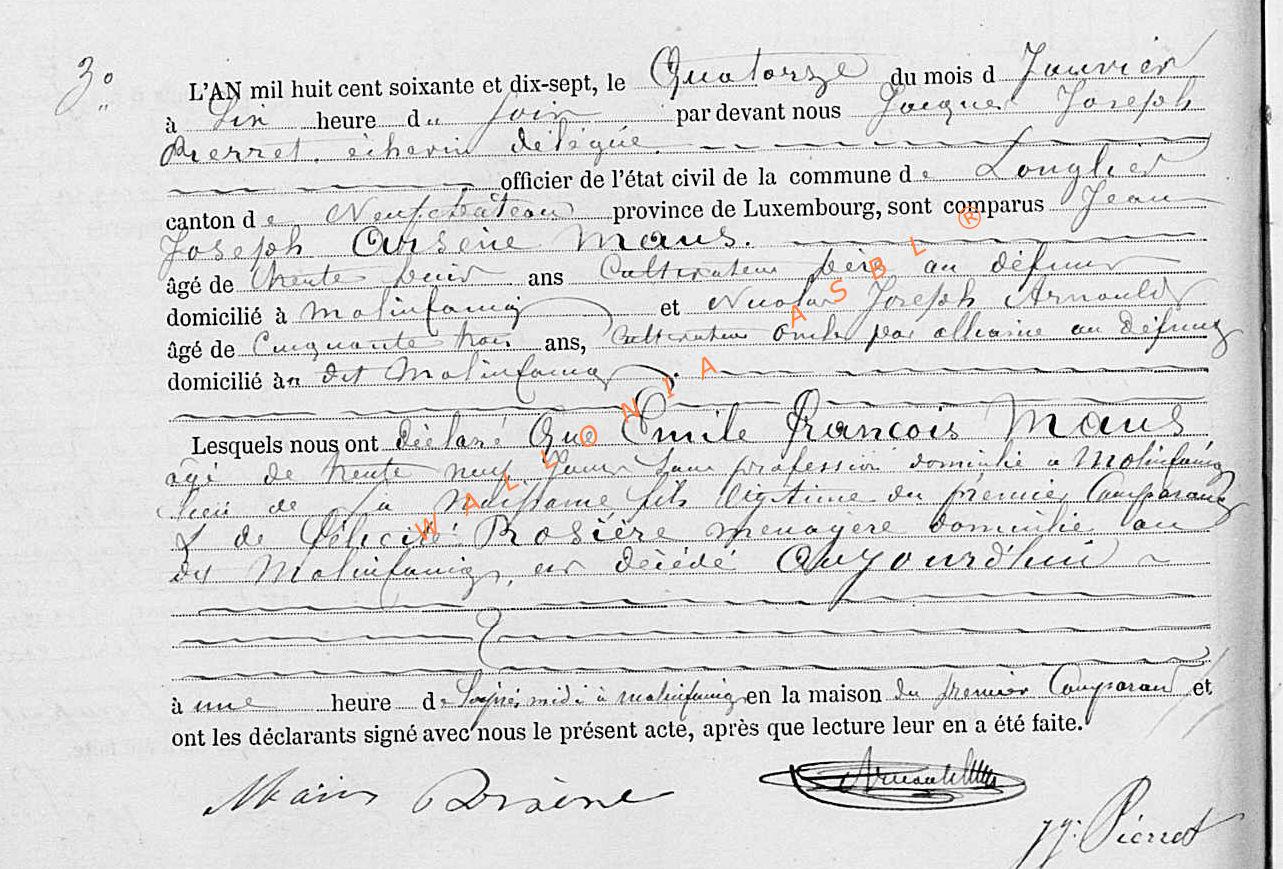 3°
L'AN mil huit cent soixante et dix-sept, le Quatorze du mois d Janvier
à Six heure du Soir par devant nous Jacques Joseph
Pierret échevin délégué
officier de l'état civil de la commune de Longlier
canton de Neufchateau province de Luxembourg, sont comparus Jean
Joseph Arsène Maus.
âgé de trente ans Cultivateur père au défunt
domicilié à Molinfaing et Nicolas Joseph Arnould
âgé de Cinquante trois ans, Cultivateur oncle par alliance au défunt
domicilié à dit Molinfaing
Lesquels nous ont déclaré Que Emile François Maus
agé de trente neuf jours sans profession domicilié a Molinfaing
lieu de sa naissance fils légitime du premier Comparant
& de Félicité Rosière menagère domicilié au
dit Molinfaing, est décédé Aujourd'hui
à une heure de L'après midi à molinfaing en la maison du premier Comparant et
ont les déclarants signé avec nous le présent acte, après que lecture leur en a été faite.
Arsène Arnould
Pierret
WALLONIA ASBL ®